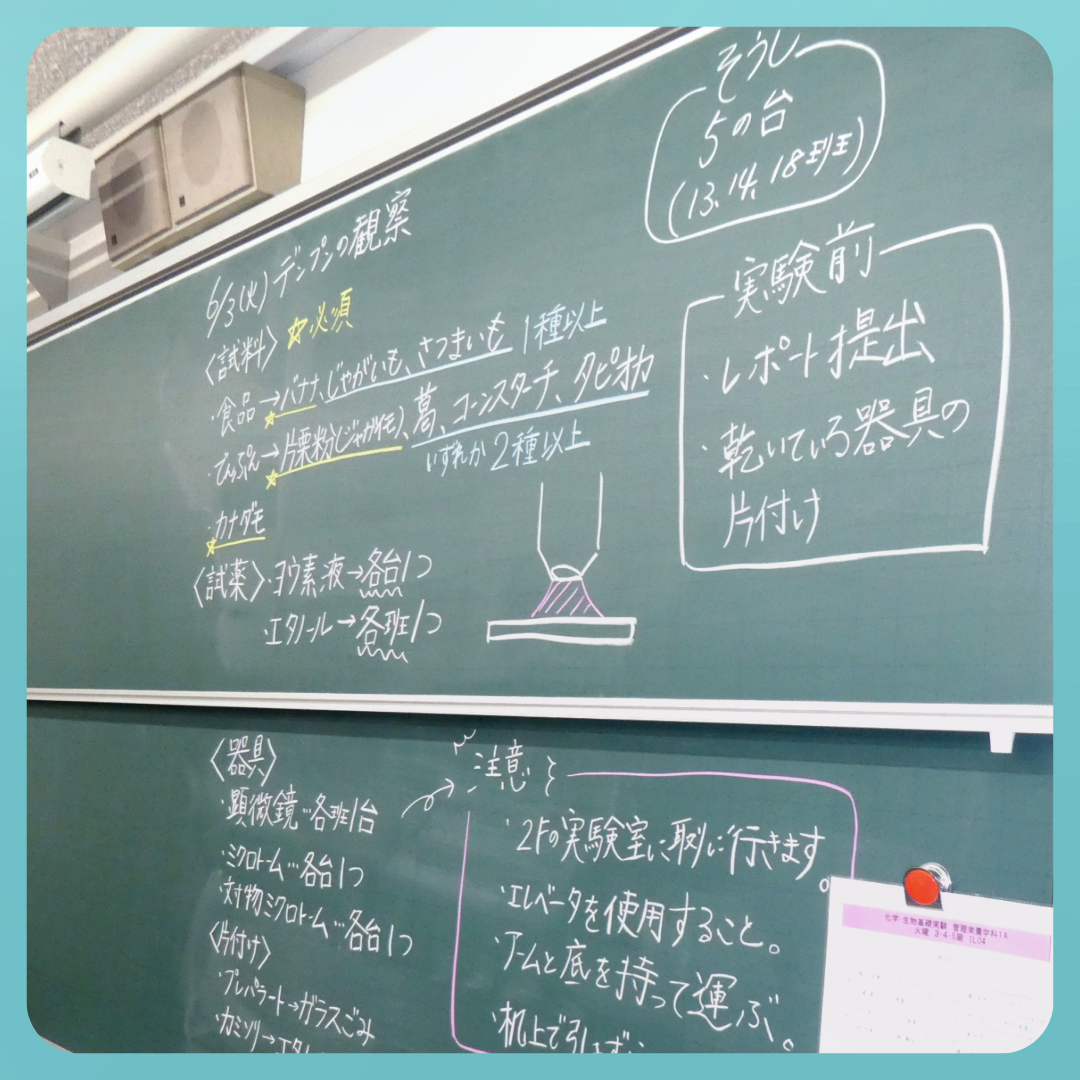 そうじ
5の台
(13、14、18班)
6/3(火) デンプンの観察
〈試料〉 ☆必須
・食品→バナナ、じゃがいも、さつまいも 1種以上
・でんぷん→片栗粉(ジャガイモ)、葛、コーンスターチ、タピオカ
いずれか2種以上
・カナダモ
〈試薬〉・ヨウ素液→各台1つ
・エタノール→各班1つ
実験前
・レポート提出
・乾いている器具の
片付け
〈器具〉
・顕微鏡…各班1台
・ミクロトーム…各台1つ
・対物ミクロトーム…各台1つ
〈片付け〉
・プレパラート→ガラスごみ
・カミソリ→エタ
注意
・2Fの実験室に取りに行きます。
・エレベータを使用すること。
・アームと底を持って運ぶ。
・机上で引
化学・生物基礎実験 管理栄養学科1A
火曜 3-4-5限 1L04